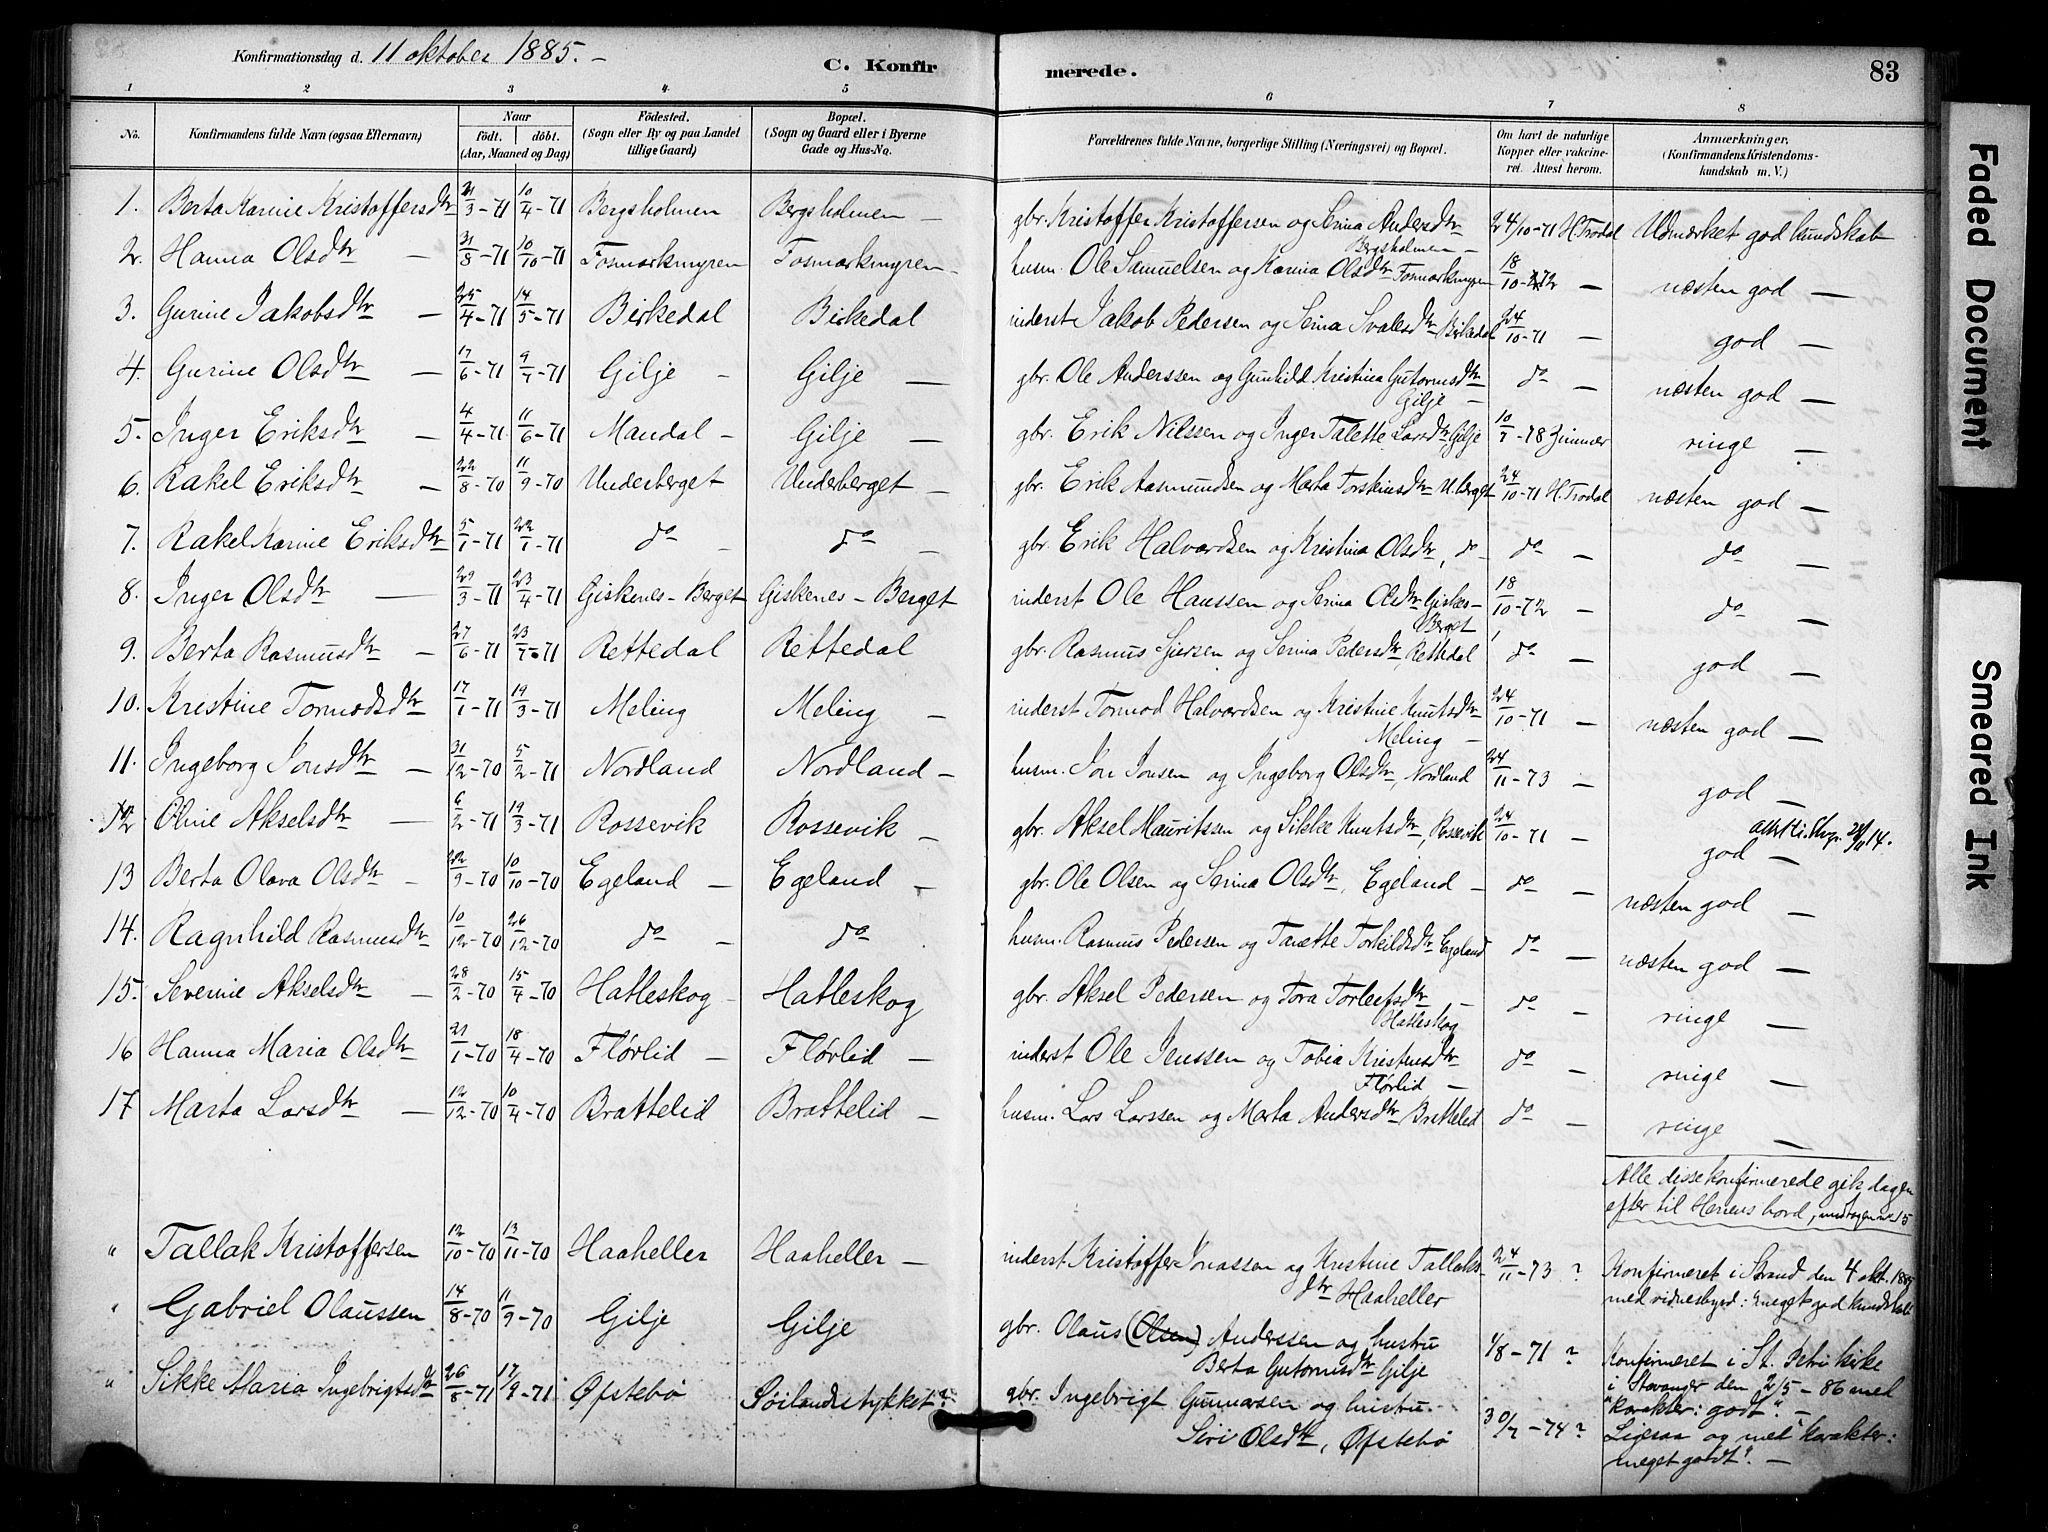 Konfirmationsdag d. 11 oktober 1885. –
C. Konfirmerede. 83
1 2 3 4 5 6 7 8
No. Konfirmandens fulde Navn (ogsaa Efternavn) Naar født. døbt. (Aar, Maaned og Dag) Fødested. (Sogn eller By og paa Landet tillige Gaard) Bopæl. (Sogn og Gaard eller i Byerne Gade og Hus-No. Forældrenes fulde Navne, borgerlige Stilling (Næringsvei) og Bopæl. Om havt de naturlige Kopper eller vakcineret. Attest herom. Anmærkninger. (Konfirmandens Kristendomskundskab m. V.)
1. Berta Karine Kristoffersdtr 21/3-71 10/4-71 Bergsholmen Bergsholmen – gbr. Kristoffer Kristoffersen og Serina Andersdtr Bergsholmen – 24/10-71 H. Trodal Udmærket god kundskab
2. Hanna Olsdtr – 31/8-71 10/10-71 Fosmarkmyren Fosmarkmyren – husm. Ole Samuelsen og Karina Olsdtr Fosmarkmyren 18/10-72 – næsten god –
3. Gurine Jakobsdtr – 25/4-71 14/5-71 Birkedal Birkedal inderst Jakob Pedersen og Serina Svalesdtr Birkedal 24/10-71 – god –
4. Gurine Olsdtr – 17/6-71 9/7-71 Gilje – Gilje – gbr. Ole Anderssen og Gunhild Kristina Gutormsdtr Gilje – do – næsten god –
5. Inger Eriksdtr – 4/4-71 11/6-71 Mandal – Gilje – gbr. Erik Nilssen og Inger Talette Larsdtr Gilje 10/7-78 Zimmer ringe –
6. Rakel Eriksdtr – 22/8-70 11/9-70 Underberget Underberget – gbr. Erik Aasmundsen og Marta Torkinsdtr U.berget 24/10-71 H. Trodal næsten god –
7. Rakel Karine Eriksdtr 5/1-71 22/1-71 do – do – gbr. Erik Halvardsen og Kristina Olsdtr, do – do – do –
8. Inger Olsdtr – 29/3-71 23/4-71 Giskenes – Berget Giskenes – Berget inderst Ole Hanssen og Serina Olsdtr Giskes – Berget 18/10-72 – do –
9. Berta Rasmusdtr – 27/6-71 23/7-71 Rettedal Rettedal gbr. Rasmus Sjursen og Serina Pedersdtr, Rettedal do – god –
10. Kristine Tormodsdtr 17/1-71 19/3-71 Meling Meling – inderst Tormod Halvardsen og Kristine Knutsdtr Meling – 24/10-71 – næsten god –
11. Ingeborg Jonsdtr – 31/12-70 5/2-71 Nordland Nordland – husm. Jon Jonsen og Ingeborg Olsdtr, Nordland 24/11-73 – god –
12 Oline Akselsdtr – 6/2-71 19/3-71 Rossevik Rossevik – gbr. Aksel Mauritssen og Sikke Knutsdtr, Rossevik 24/10-71 – god –
13 Berta Olava Olsdtr – 22/9-70 10/10-70 Egeland – Egeland – gbr. Ole Olsen og Serina Olsdtr, Egeland – do – næsten god –
14. Ragnhild Rasmusdtr 10/12-70 26/12-70 do – do husm. Rasmus Pedersen og Tarette Torkildsdtr Egeland do – næsten god –
15. Severine Akselsdtr – 28/2-70 15/4-70 Hatleskog – Hatleskog gbr. Aksel Pedersen og Tora Torleifsdtr, – Hatleskog do – ringe –
16 Hanna Maria Olsdtr 21/1-70 18/4-70 Flørlid – Flørlid – inderst Ole Jenssen og Tobia Kristensdtr Flørlid – do – ringe –
17 Marta Larsdtr – 12/12-70 10/4-70 Brattelid Brattelid – husm. Lars Larssen og Marta Andersdtr Brattelid do – ringe –
Alle disse konfirmerede gik dagen
efter til Herrens bord, undtagen no 15
" Tallak Kristoffersen 12/10-70 13/11-70 Haaheller Haaheller – inderst. Kristoffer Jonassen og Kristine Tallaksdtr Haaheller 24/11-73 ? Konfirmeret i Strand den 4 okt. 1885 med vidnesbyrd: meget god kundskab
" Gabriel Olaussen 14/8-70 11/9-70 Gilje Gilje gbr. Olaus (Olsen) Anderssen og hustru Berta Gutormsdtr Gilje 1/8-71 ? Konfirmeret i St. Petri kirke i Stavanger den 2/5-86 med "karakter: godt". –
" Sikke Maria Ingebrigtsdtr 26/8-71 17/9-71 Øfstebø Søilandsstykket ? gbr. Ingebrigt Gunnarsen og hustru. Siri Olsdtr, Øfstebø 30/7-74 ? Ligesaa og med "karakter: meget godt". –
Faded Document
Smeared Ink